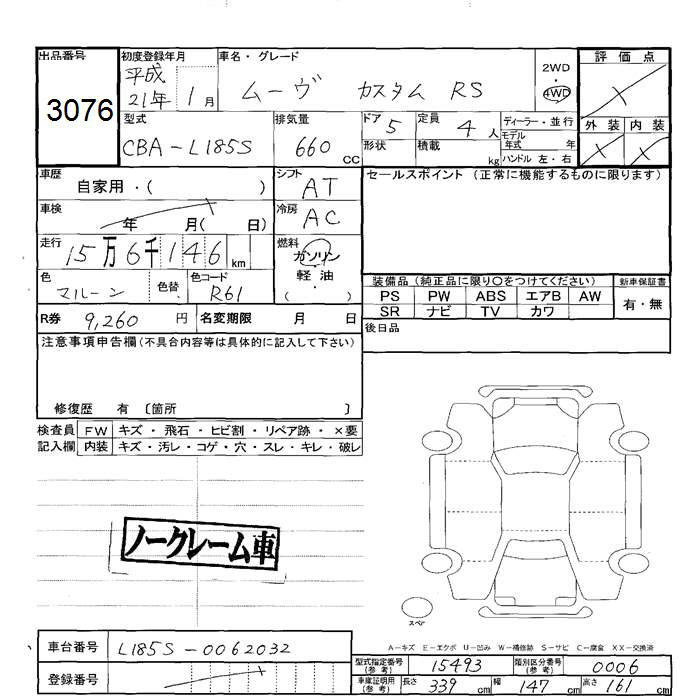 出品番号 初度登録年月 車名・グレード 評価点
3076 平成21年1月 ムーヴ カスタム RS 2WD 4WD
型式 排気量 ドア 定員 ディーラー・並行 外装 内装
CBA-L185S 660cc 5 4人 モデル年式 年
形状 積載 kg ハンドル 左・右
車歴 自家用・( ) シフト AT セールスポイント (正常に機能するものに限ります)
車検 年 月( 日) 冷房 AC
走行 15万6千146km 燃料 ガソリン 軽油 ( )
色 マルーン 色替 色コード R61 装備品 (純正品に限り○をつけてください) 新車保証書
PS PW ABS エアB AW 有・無
R券 9,260円 名変期限 月 日 SR ナビ TV カワ
後日品
注意事項申告欄(不具合内容等は具体的に記入して下さい)
修復歴 有 〔箇所 〕
検査員 FW キズ・飛石・ヒビ割・リペア跡・×要
記入欄 内装 キズ・汚レ・コゲ・穴・スレ・キレ・破レ
ノークレーム車
スペア
A-キズ E-エクボ U-凹み W-補修跡 S-サビ C-腐食 XX-交換済
車台番号 L185S-0062032
型式指定番号(参考) 15493 類別区分番号(参考) 0006
登録番号
車庫証明用(参考) 長さ 339cm 幅 147cm 高さ 161cm